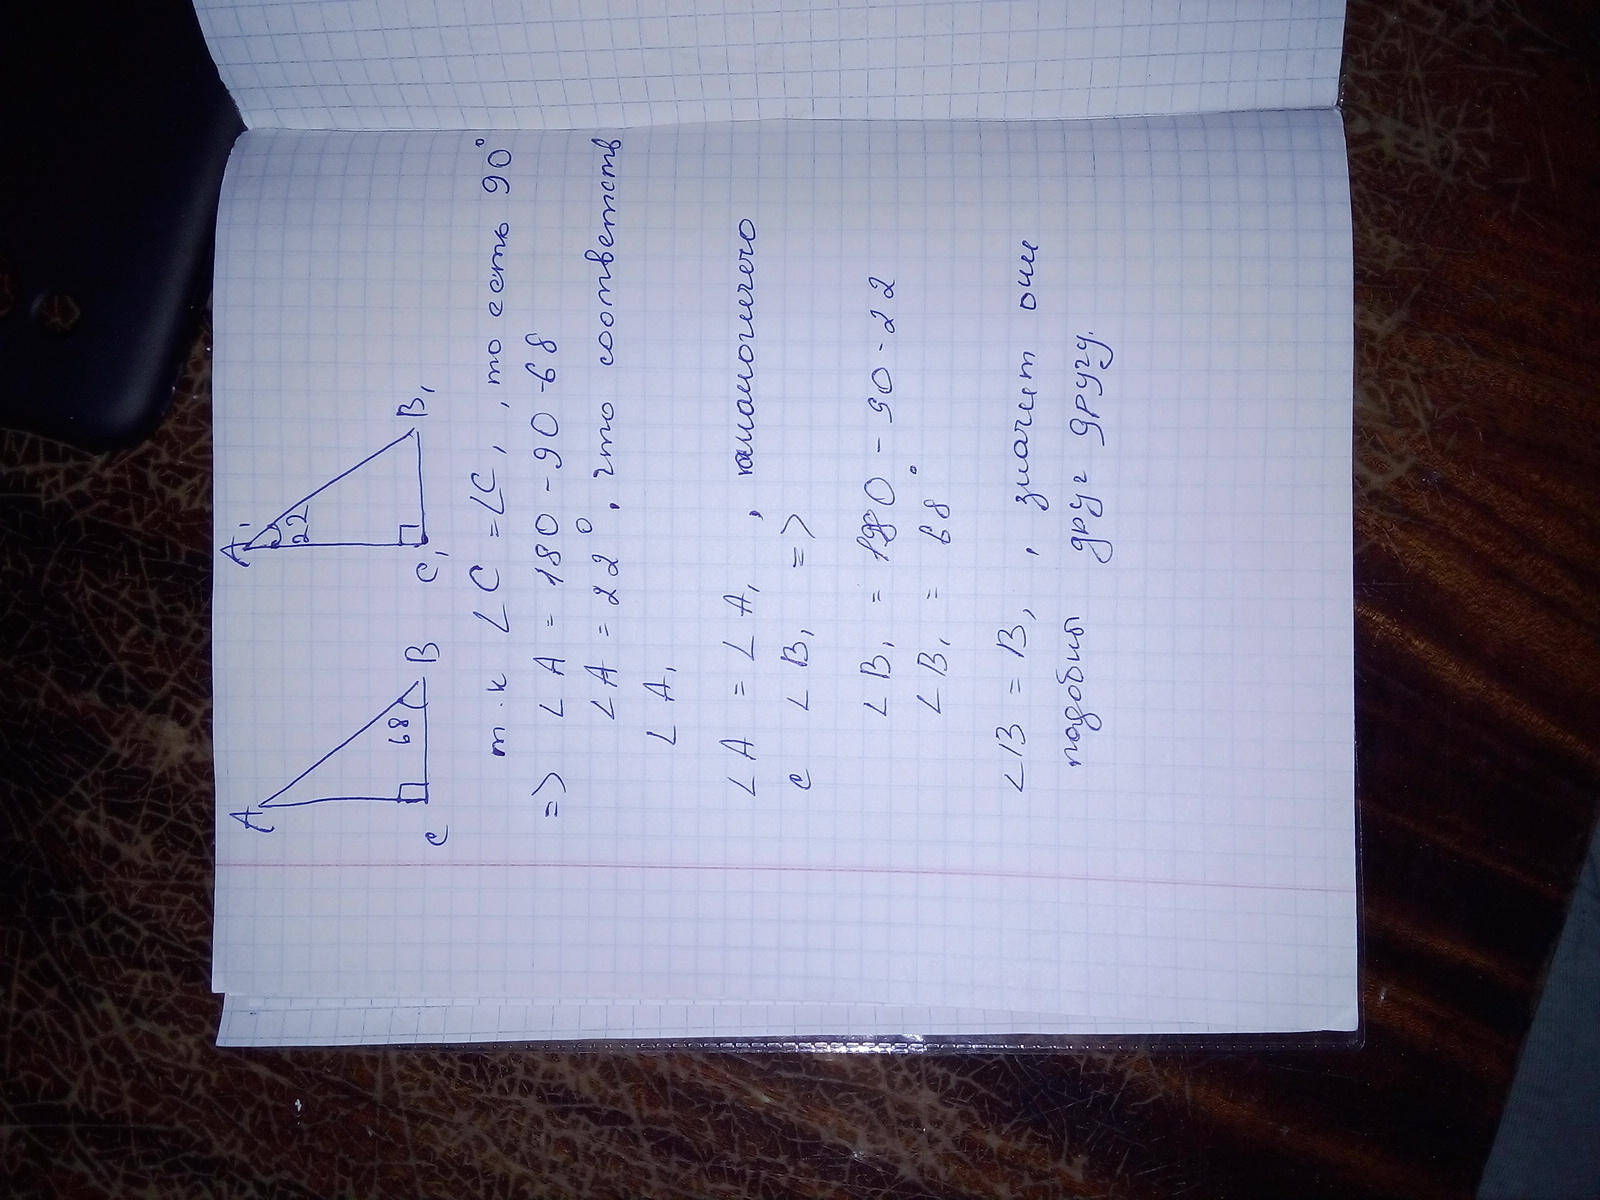 A
68
C
B
A'
22
C₁
B₁
т.к ∠C = ∠C₁, то есть 90°
=> ∠A = 180 - 90 - 68
∠A = 22°, что соответств
∠A₁
∠A = ∠A₁, аналогично
с ∠B₁ =>
∠B₁ = 180 - 90 - 22
∠B₁ = 68°
∠B = B₁, значит они
подобны друг другу.